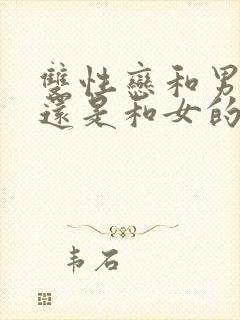 雙性戀和男
還是和女的
韦石